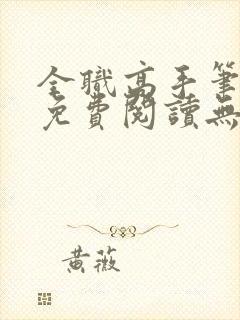 全職高手筆
免費閱讀無
黃薇